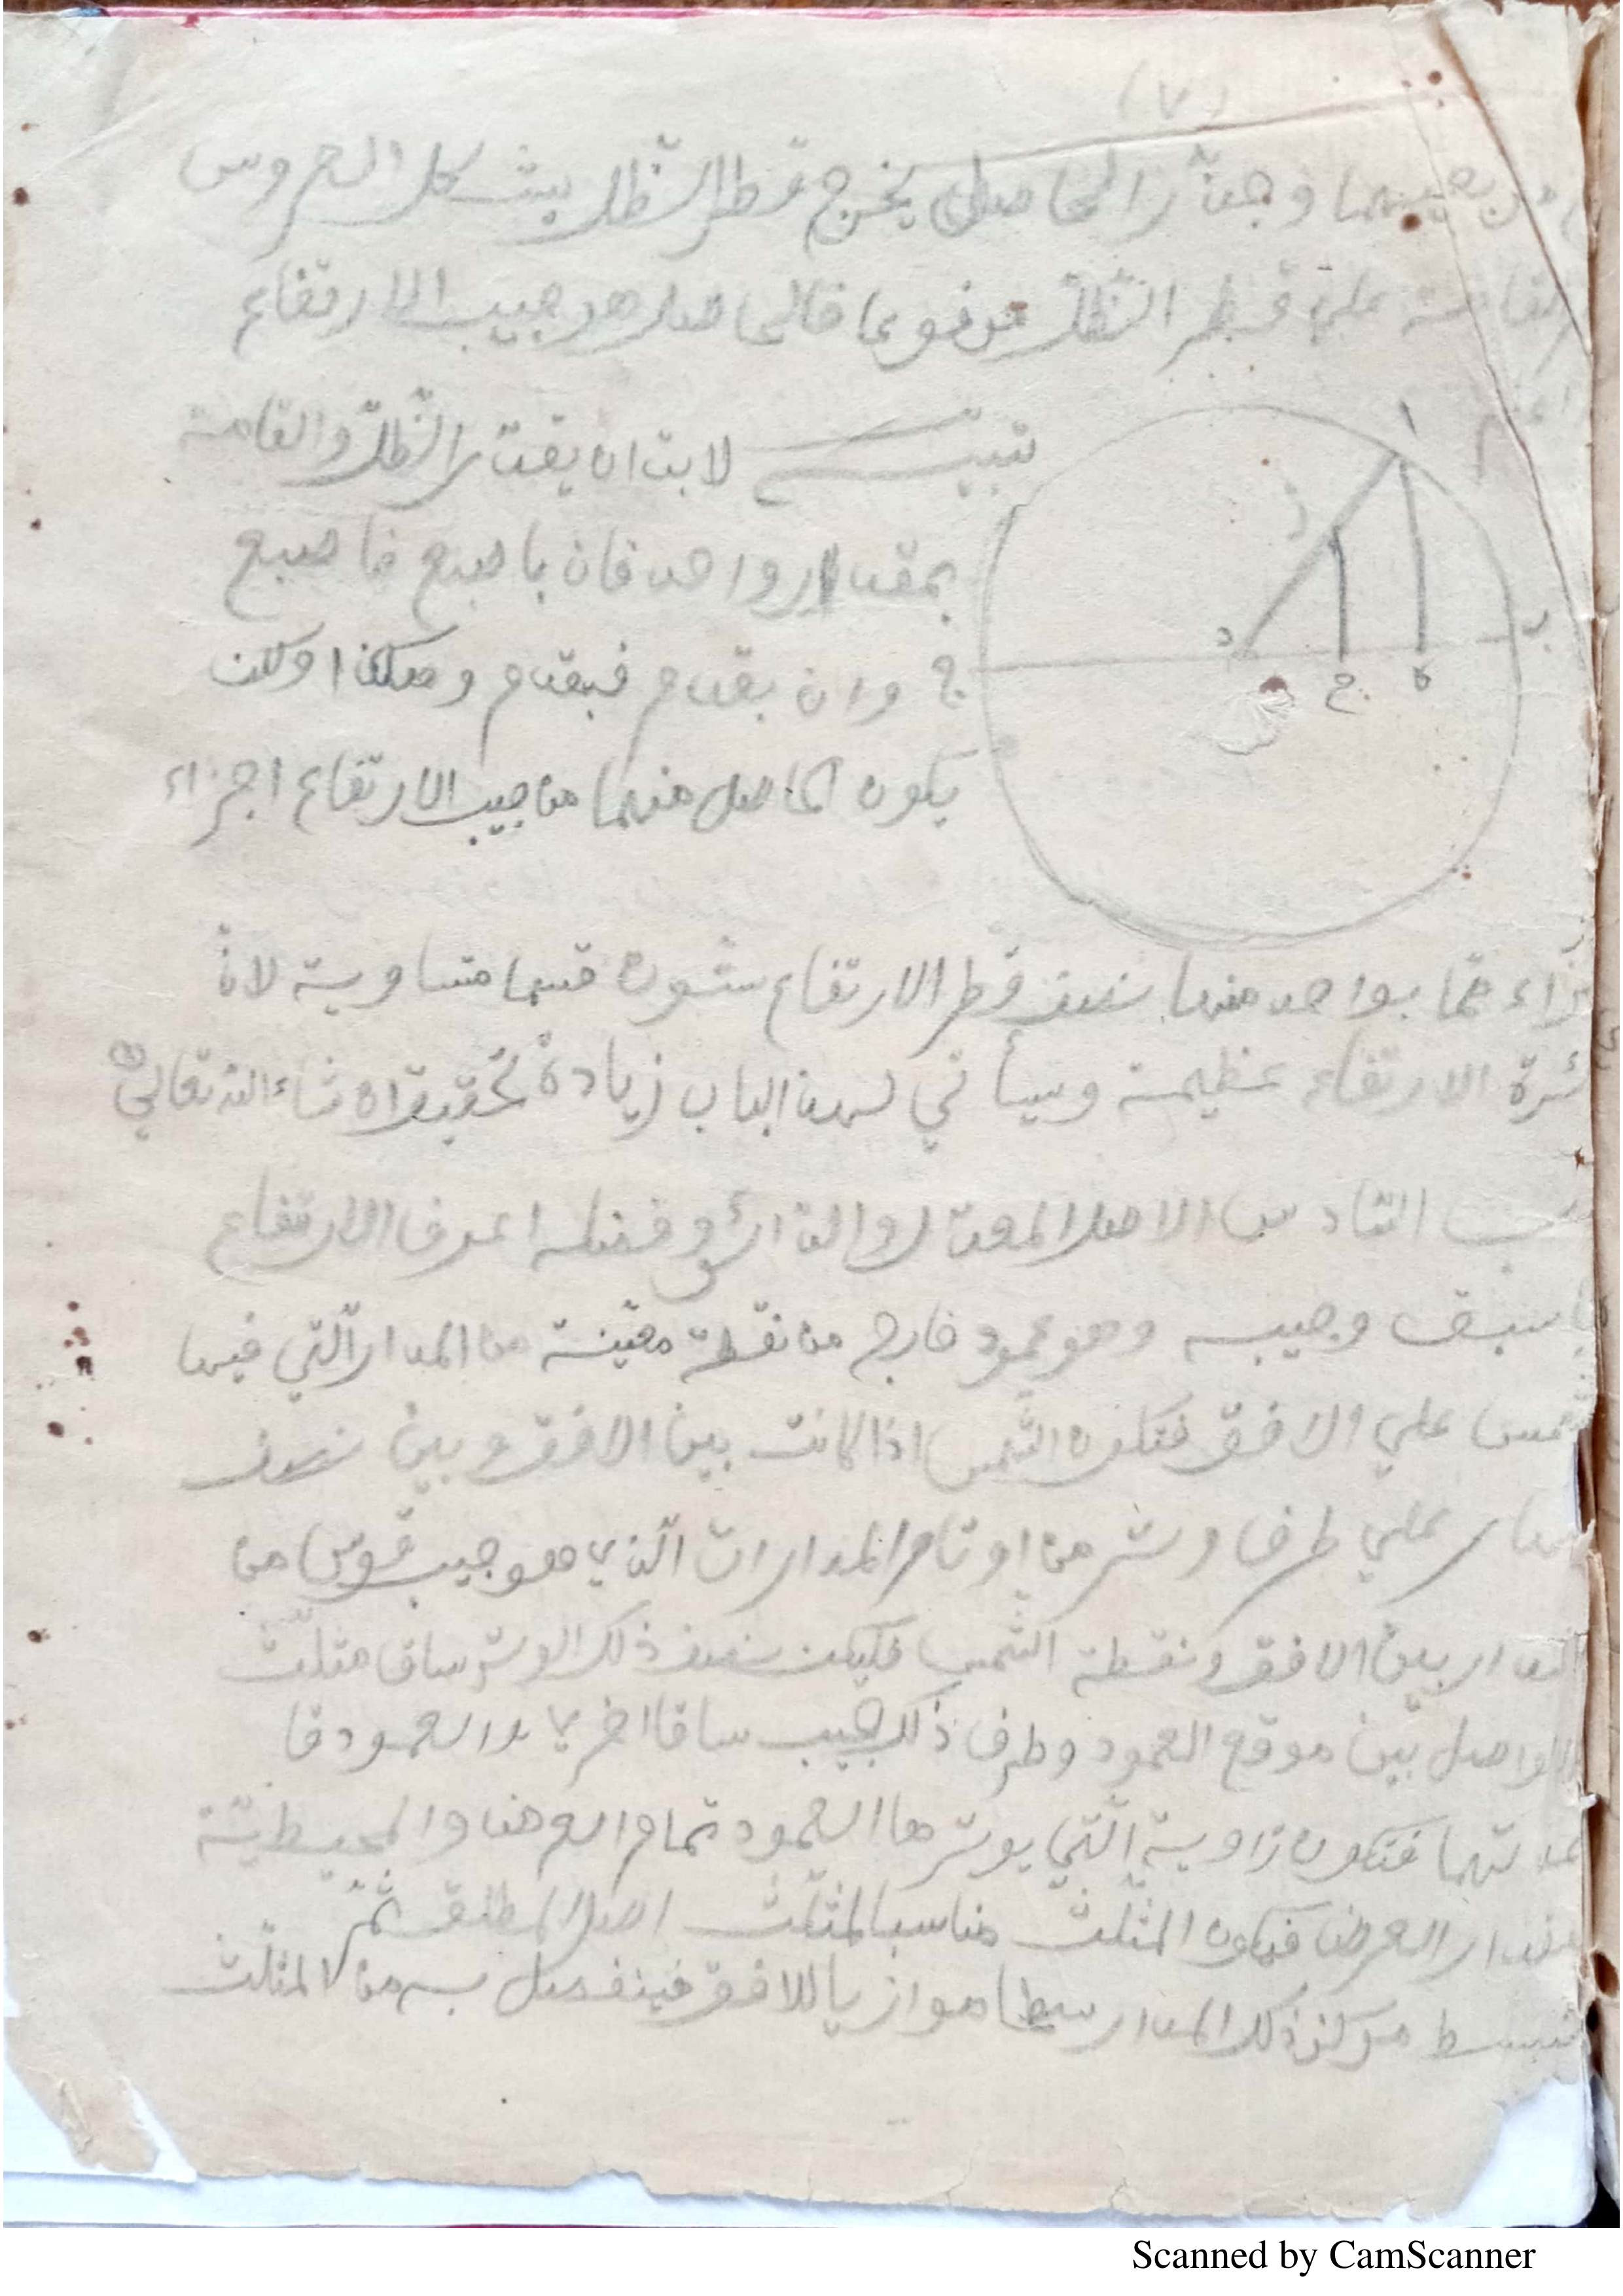 (٧)
وجذر الحاصل يخرج قطر الظل بشكل العروس
القامة على قطر الظل مرفوعا فالحاصل هو جيب الارتفاع
تنبيه لا بد ان يقدر الظل والقامة
بمقدار واحد فان باصبع فاصبع
وان بقدم فبقدم وهكذا ولكن
يكون الحاصل منهما من جيب الارتفاع اجزاء
ا
د
ب
ج
ح
ه
بواحد منها نصف قطر الارتفاع ستون قسما متساوية لان
الارتفاع عظيمة وسيأتي لهذا الباب زيادة تحقيق ان شاء الله تعالى
السادس الاصل المعدل والدائر وفضله اعرف الارتفاع
سبق وجيبه وهو عمود خارج من نقطة معينة من المدار الّتي فيها
علي الافق فتكون الشمس اذا كانت بين الافق وبين نصف
علي طرف وتر من اوتار المدارات الّذي هو جيب قوس من
المدار بين الافق ونقطة الشمس فليكن نصف ذلك الوتر ساق مثلّث
الواصل بين موقع العمود وطرف ذلك الجيب ساقا اخري والعمود قا
عدتهما فتكون زاوية الّتي يوترها العمود تمام العرض والمحيطيّة
العرض فيكون المثلّث مناسبا لمثلّث اصل المطلق ثمّ
مركز ذلك المدار سطحا موازيا للافق فينفصل به من المثلّث
Scanned by CamScanner